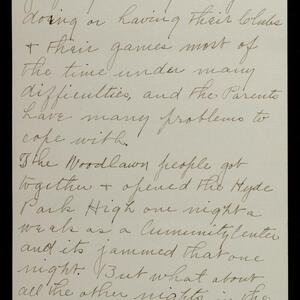 doing or having their Clubs
+ their games most of
the time under many
difficulties, and the Parents
have many problems to
cope with.
The Woodlawn people got
together + opened the Hyde
Park High one night a
week as a Community Center
and its jammed that one
night. But what about
all the other nights in the